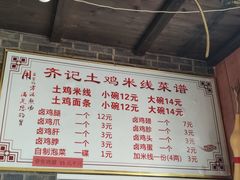 齐记土鸡米线菜谱
土鸡米线 小碗12元 大碗14元
土鸡面条 小碗12元 大碗14元
卤鸡腿 一个 12元
卤鸡爪 一个 3元
卤鸡肝 一个 3元
卤鸡脖 一个 3元
自制泡菜 一碟 1元
卤鸡翅 一个 7元
卤鸡胗 一个 3元
卤鸡头 一个 3元
卤鸡蛋 一个 2元
加米线一份(4两) 3元